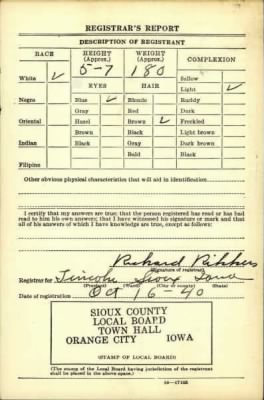 REGISTRAR'S REPORT
DESCRIPTION OF REGISTRANT
RACE HEIGHT (Approx.) WEIGHT (Approx.) COMPLEXION
5-7 180
White ✓ Sallow
EYES HAIR Light ✓
Negro Blue ✓ Blonde Ruddy
Gray Red Dark
Oriental Hazel Brown ✓ Freckled
Brown Black Light brown
Indian Black Gray Dark brown
Bald Black
Filipino
Other obvious physical characteristics that will aid in identification
I certify that my answers are true; that the person registered has read or has had
read to him his own answers; that I have witnessed his signature or mark and that
all of his answers of which I have knowledge are true, except as follows:
Richard
(Signature of registrar)
Registrar for Lincoln Sioux Iowa
(Precinct) (Ward) (City or county) (State)
Date of registration Oct 16-40
SIOUX COUNTY
LOCAL BOARD
TOWN HALL
ORANGE CITY IOWA
(STAMP OF LOCAL BOARD)
(The stamp of the Local Board having jurisdiction of the registrant
shall be placed in the above space.)